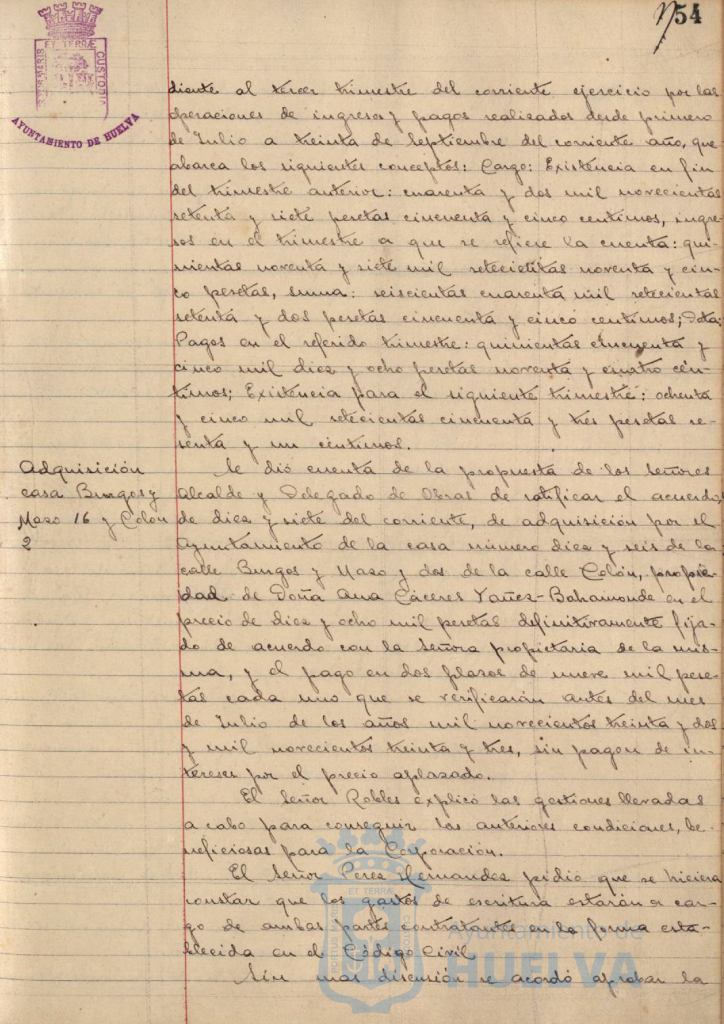 54
PORTUS MARIS ET TERRÆ CUSTODIA
AYUNTAMIENTO DE HUELVA
diente al tercer trimestre del corriente ejercicio por las
operaciones de ingresos y pagos realizados desde primero
de Julio a treinta de Septiembre del corriente año, que
abarca los siguientes conceptos: Cargo: Existencia en fin
del trimestre anterior: cuarenta y dos mil novecientas
setenta y siete pesetas cincuenta y cinco centimos, ingre-
sos en el trimestre a que se refiere la cuenta: qui-
nientas noventa y siete mil setecientas noventa y cin-
co pesetas, suma: seiscientas cuarenta mil setecientas
setenta y dos pesetas cincuenta y cinco centimos; Data:
Pagos en el referido trimestre: quinientas cincuenta y
cinco mil diez y ocho pesetas noventa y cuatro cén-
timos; Existencia para el siguiente trimestre: ochenta
y cinco mil setecientas cincuenta y tres pesetas se-
senta y un céntimos.
Adquisición
casa Burgos y
Mazo 16 y Colón
2
Se dió cuenta de la propuesta de los Señores
Alcalde y Delegado de Obras de ratificar el acuerdo,
de diez y siete del corriente, de adquisición por el
Ayuntamiento de la casa número diez y seis de la
calle Burgos y Mazo y dos de la calle Colón, propie-
dad de Doña Ana Cáceres Yañez-Bahamonde en el
precio de diez y ocho mil pesetas definitivamente fija-
do de acuerdo con la Señora propietaria de la mis-
ma, y el pago en dos plazos de nueve mil pese-
tas cada uno que se verificarán antes del mes
de Julio de los años mil novecientos treinta y dos
y mil novecientos treinta y tres, sin pagar de in-
tereses por el precio aplazado.
El Señor Robles explicó las gestiones llevadas
a cabo para conseguir las anteriores condiciones, be-
neficiosas para la Corporación.
El Señor Perez Hernandez pidió que se hiciera
constar que los gastos de escritura estarán a car-
go de ambas partes contratantes en la forma esta-
blecida en el Código Civil
Sin mas discusión se acordó aprobar la
Ayuntamiento de
HUELVA